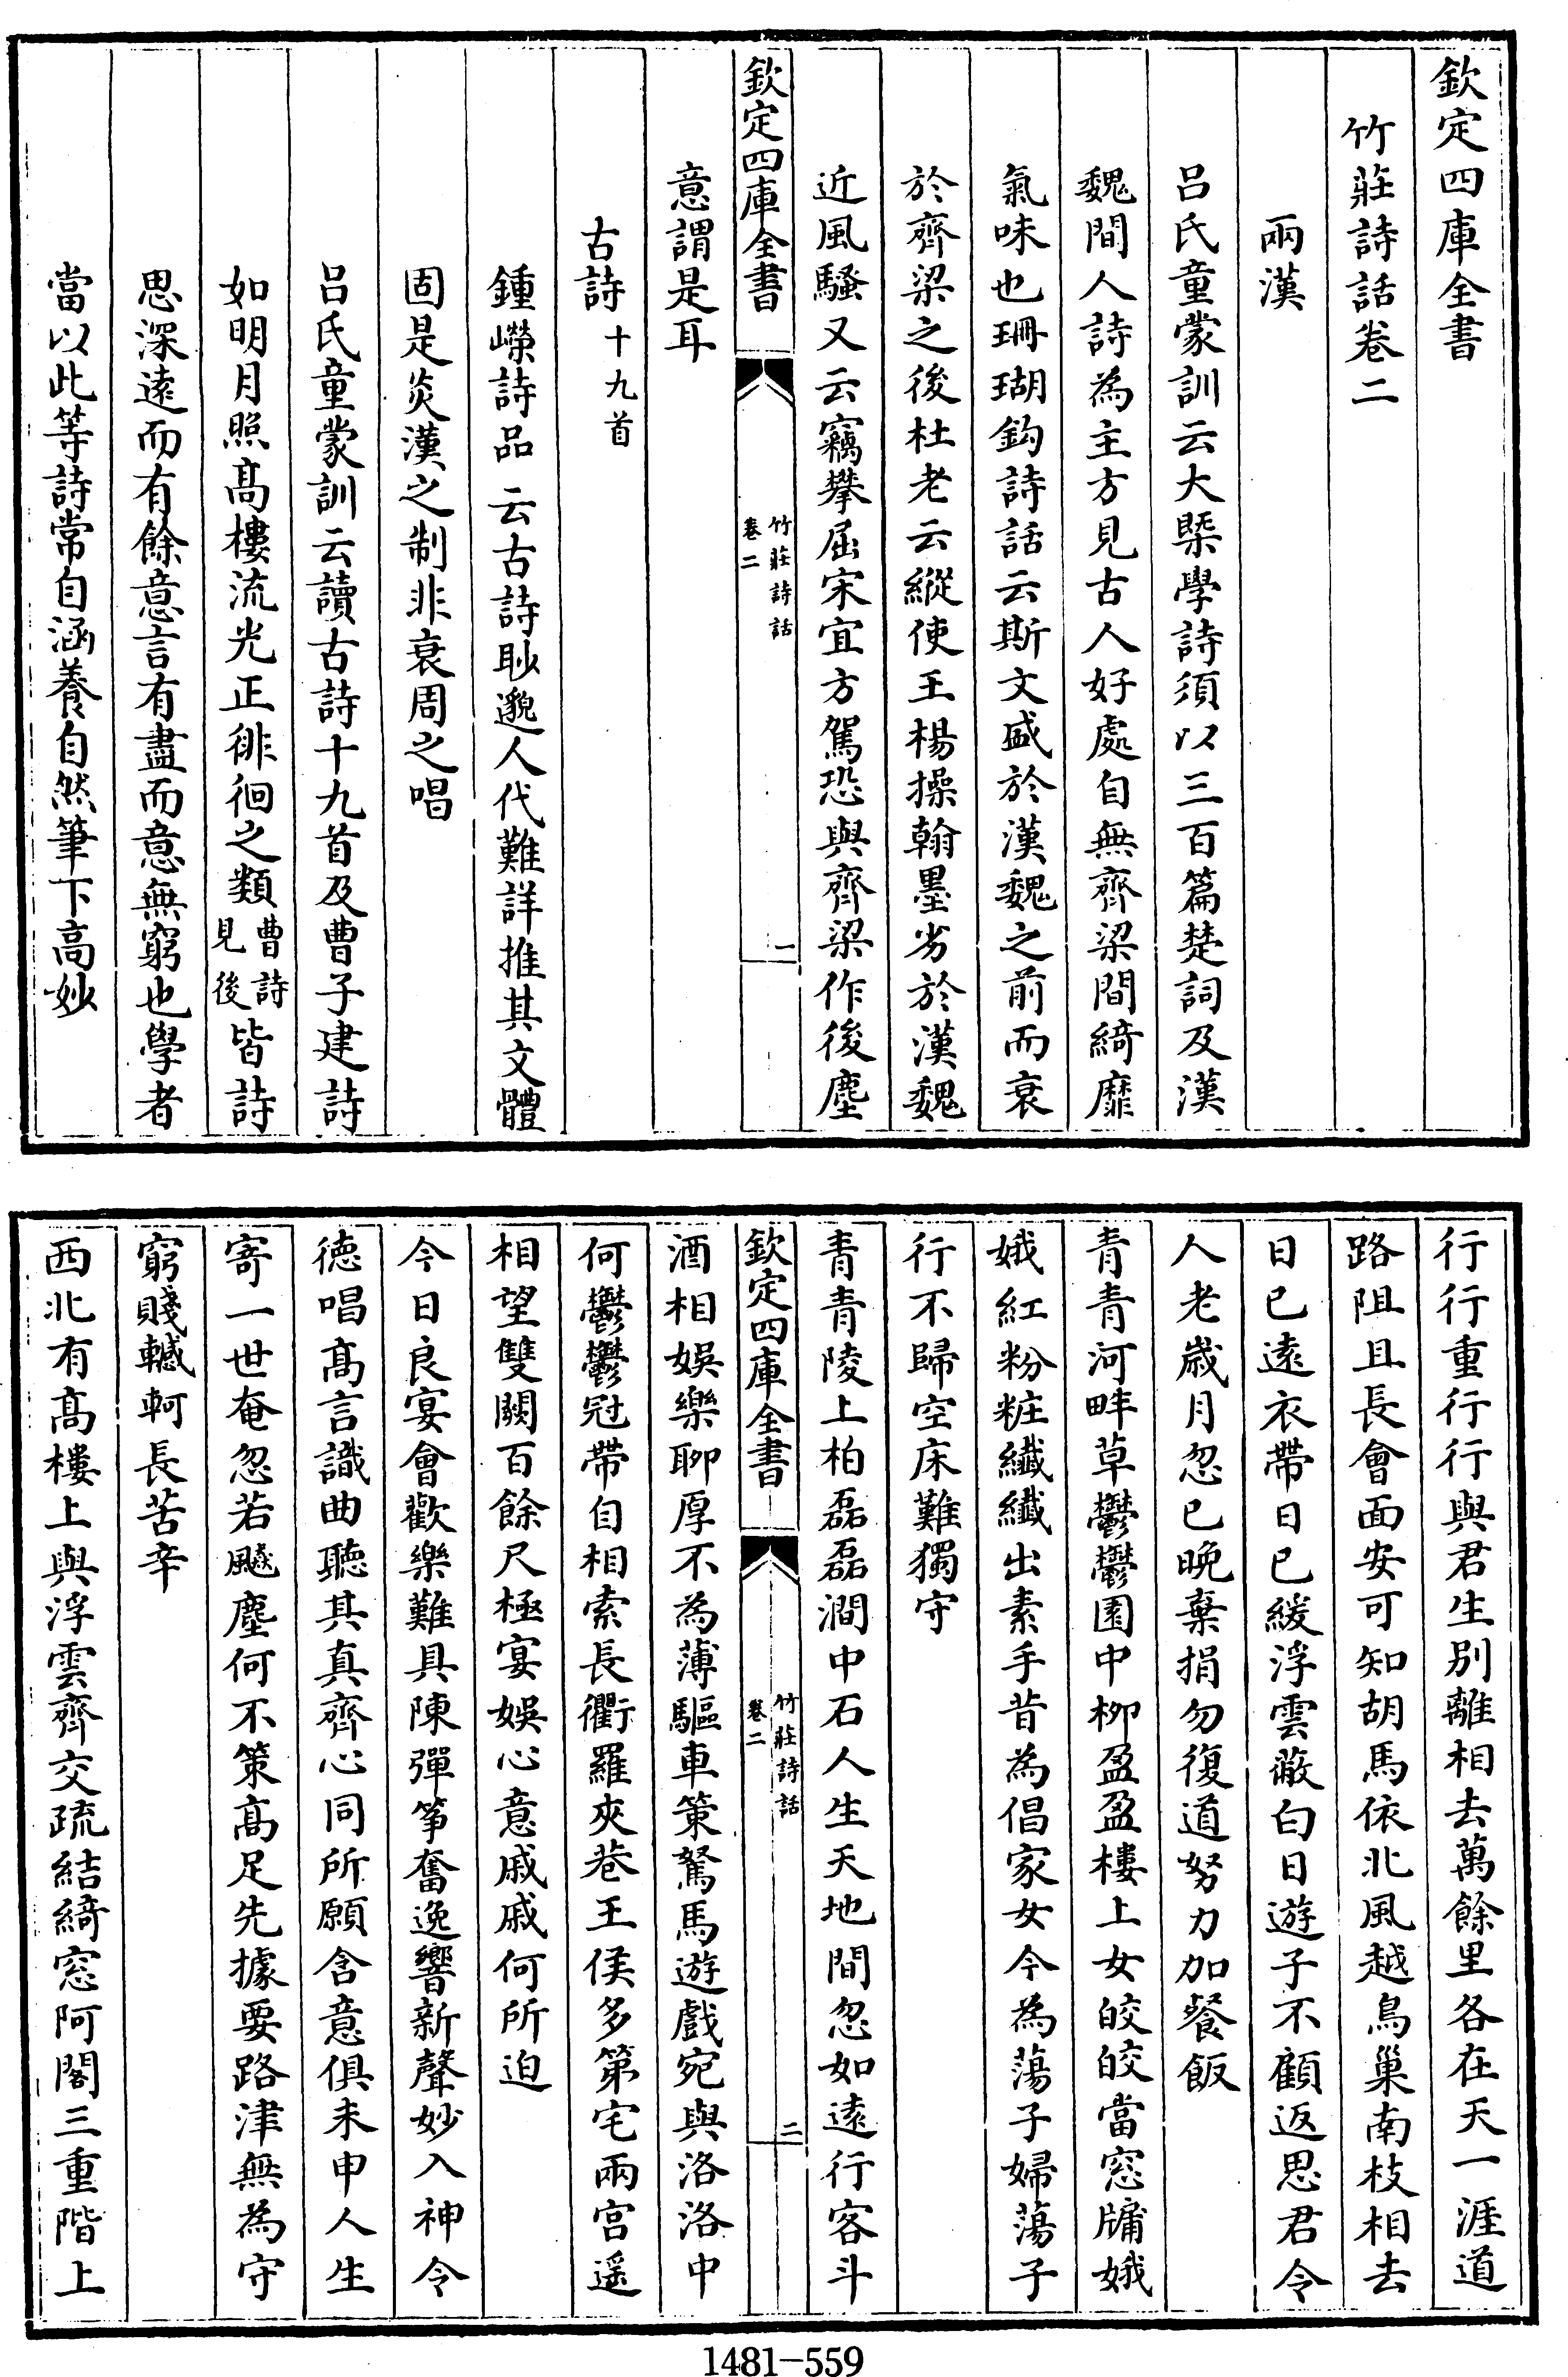 欽定四庫全書
竹莊詩話卷二
兩漢
呂氏童蒙訓云大槩學詩須以三百篇楚詞及漢
魏間人詩為主方見古人好處自無齊梁間綺靡
氣味也珊瑚鈎詩話云斯文盛於漢魏之前而衰
於齊梁之後杜老云縱使王楊操翰墨劣於漢魏
近風騷又云竊攀屈宋宜方駕恐與齊梁作後塵
欽定四庫全書
竹莊詩話
卷二
一
意謂是耳
古詩十九首
鍾嶸詩品云古詩眇邈人代難詳推其文體
固是炎漢之制非衰周之唱
呂氏童蒙訓云讀古詩十九首及曹子建詩
如明月照髙樓流光正徘徊之類曹詩見後皆詩
思深逺而有餘意言有盡而意無窮也學者
當以此等詩常自涵養自然筆下高妙
行行重行行與君生别離相去萬餘里各在天一涯道
路阻且長會面安可知胡馬依北風越鳥巢南枝相去
日已逺衣帶日已緩浮雲蔽白日遊子不顧返思君令
人老歲月忽已晚棄捐勿復道努力加餐飯
青青河畔草鬱鬱園中柳盈盈樓上女皎皎當窓牖娥
娥紅粉粧纖纖出素手昔為倡家女今為蕩子婦蕩子
行不歸空床難獨守
青青陵上柏磊磊澗中石人生天地間忽如逺行客斗
欽定四庫全書
竹莊詩話
卷二
二
酒相娛樂聊厚不為薄驅車策駑馬遊戲宛與洛洛中
何鬱鬱冠帶自相索長衢羅夾巷王侯多第宅兩宫遥
相望雙闕百餘尺極宴娛心意戚戚何所迫
今日良宴會歡樂難具陳彈筝奮逸響新聲妙入神令
徳唱髙言識曲聽其真齊心同所願含意俱未申人生
寄一世奄忽若飈塵何不策髙足先據要路津無為守
窮賤轗軻長苦辛
西北有髙樓上與浮雲齊交疏結綺窓阿閣三重階上
1481-559